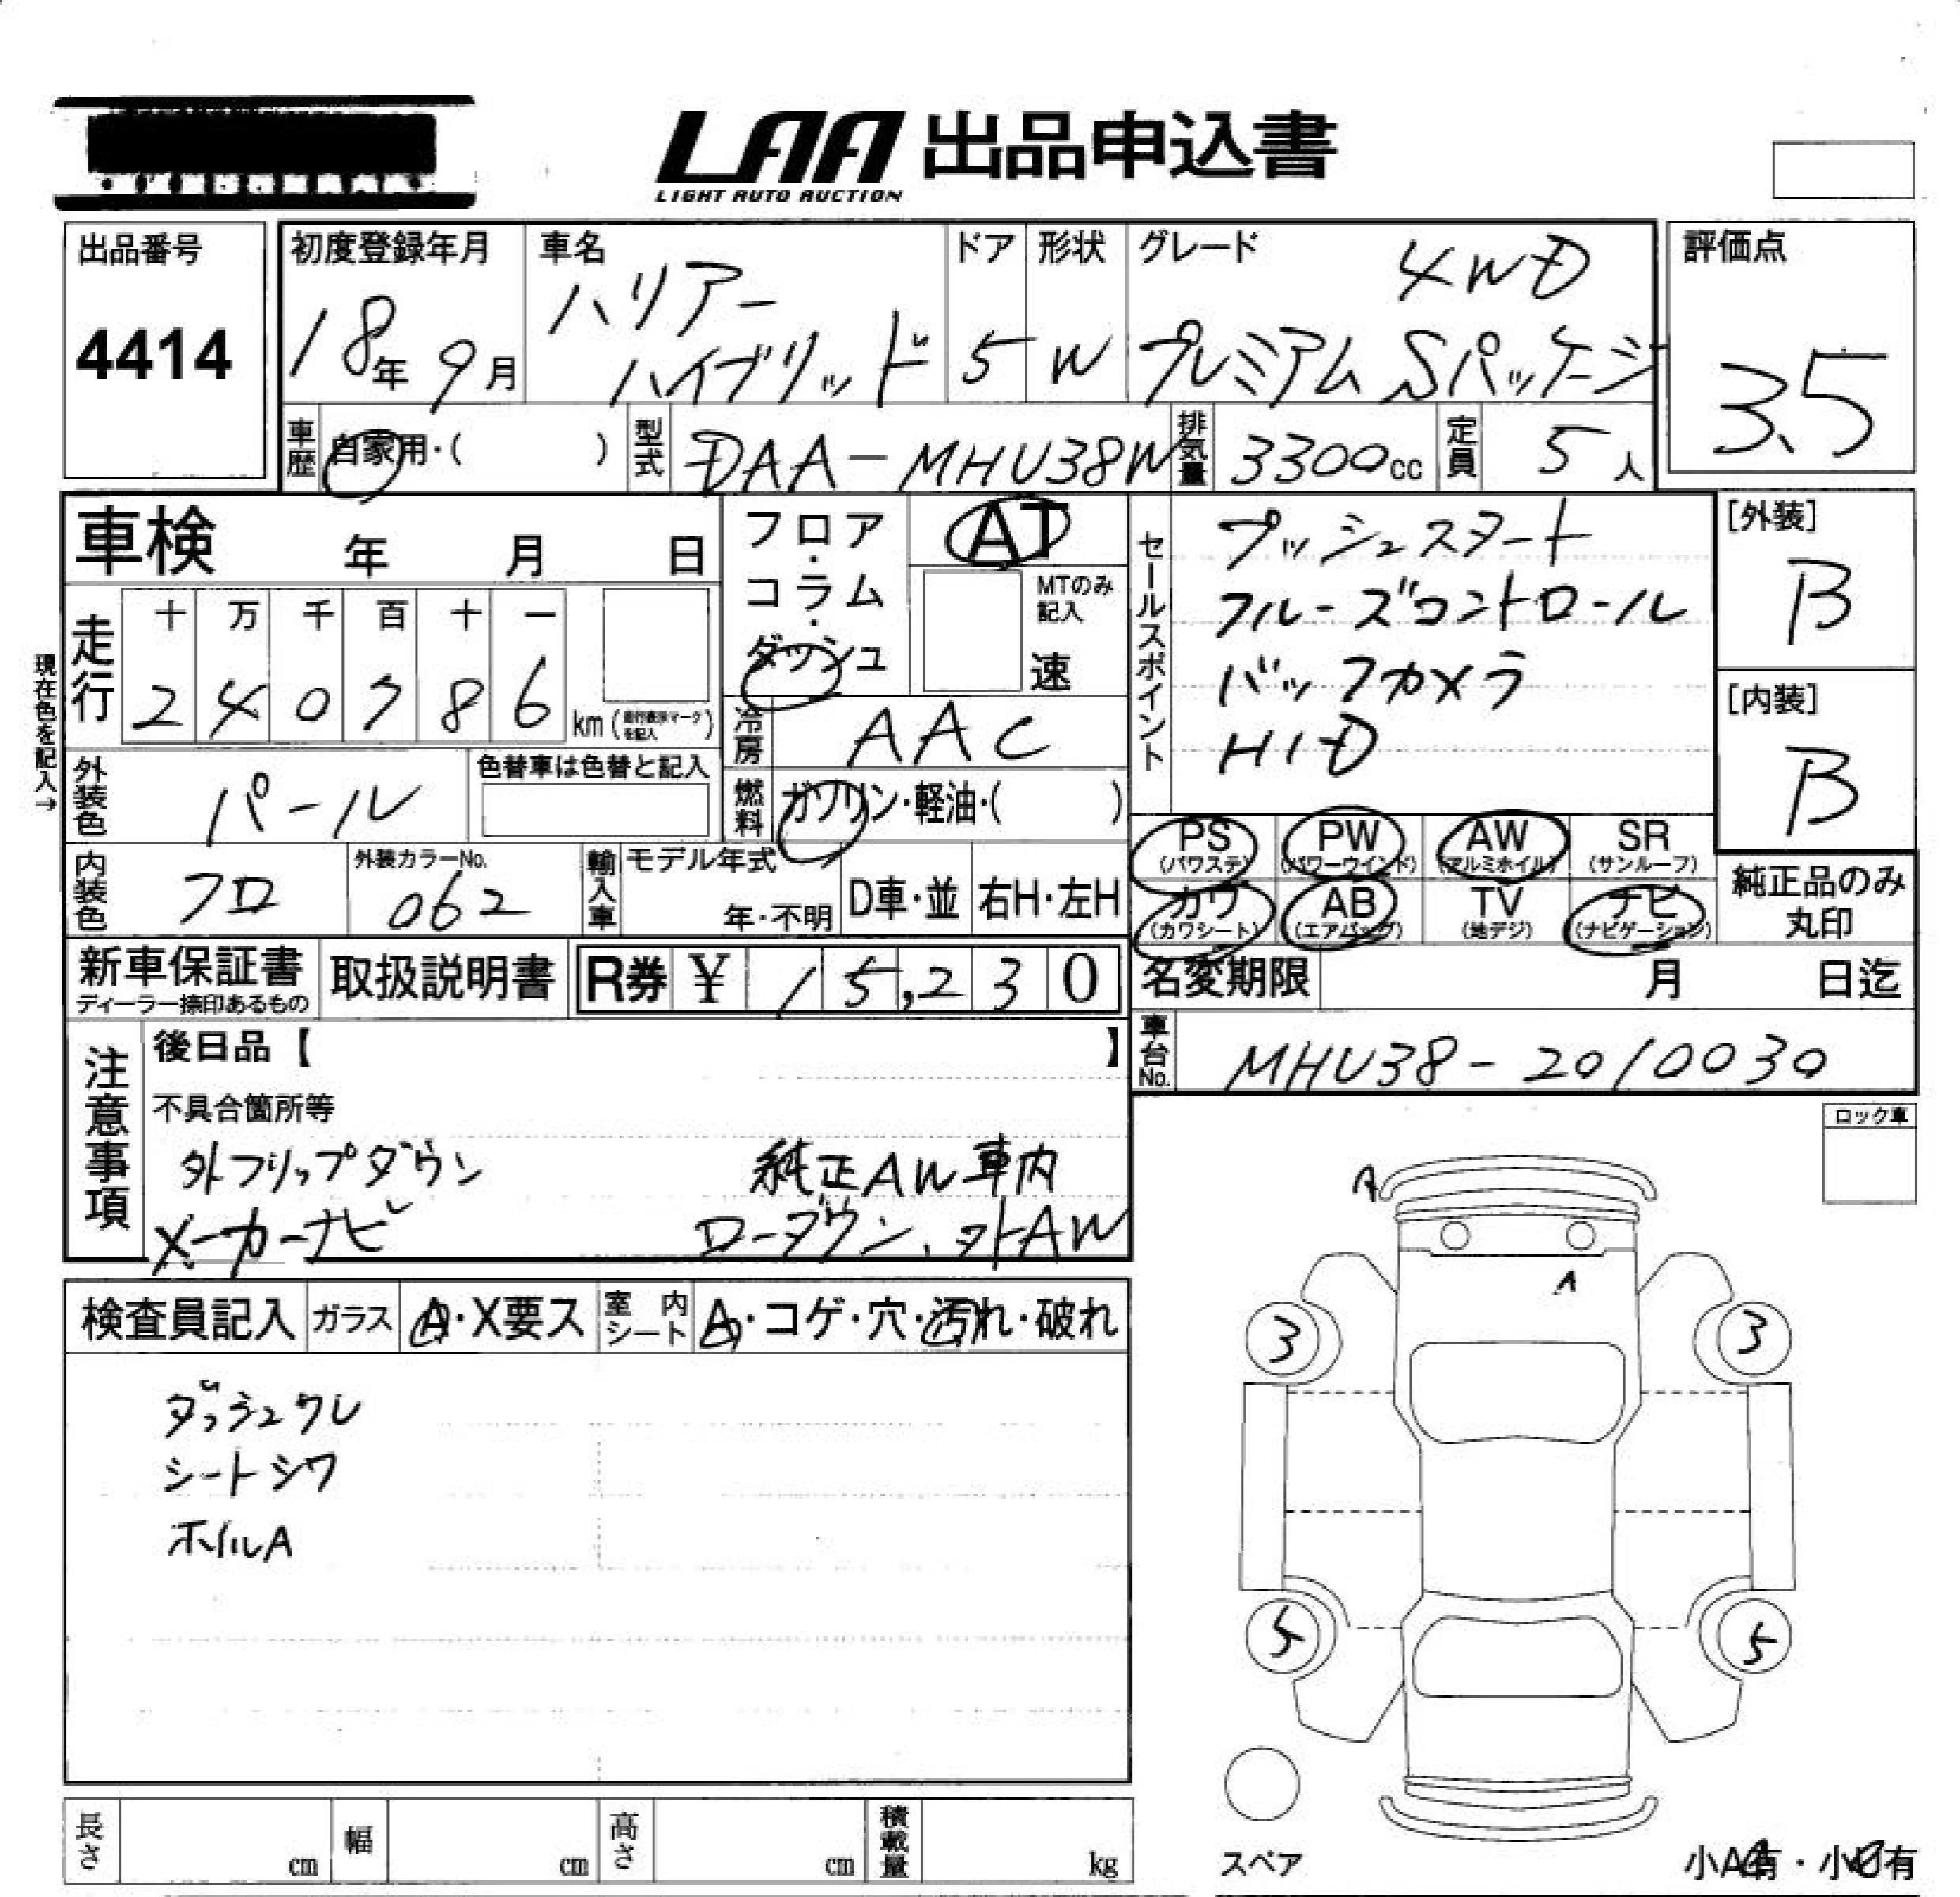 LAA 出品申込書
LIGHT AUTO AUCTION
出品番号
4414
初度登録年月
18年 9月
車名
ハリアー
ハイブリッド
ドア
5
形状
W
グレード
4WD
プレミアム Sパッケージ
評価点
3.5
車歴 自家用・( )
型式 DAA-MHU38W
排気量 3300cc
定員 5人
車検 年 月 日
フロア・コラム・ダッシュ
AT
MTのみ記入
速
走行
十 万 千 百 十 一
2 4 0 7 8 6 km (走行表示マークを記入)
現在色を記入→
冷房 AAC
燃料 ガソリン・軽油・( )
外装色 パール
色替車は色替と記入
内装色 クロ
外装カラーNo.
062
輸入車
モデル年式
年・不明
D車・並
右H・左H
セールスポイント
プッシュスタート
クルーズコントロール
バックカメラ
HID
[外装]
B
[内装]
B
PS (パワステ)
PW (パワーウインド)
AW (アルミホイル)
SR (サンルーフ)
カワ (カワシート)
AB (エアバッグ)
TV (地デジ)
ナビ (ナビゲーション)
純正品のみ
丸印
新車保証書
ディーラー捺印あるもの
取扱説明書
R券 ¥ 15,230
名変期限 月 日迄
車台No. MHU38-2010030
注意事項
後日品【 】
不具合箇所等
外フリップダウン 純正AW車内
メーカーナビ ローダウン、外AW
検査員記入
ガラス A・X要ス
室内シート A・コゲ・穴・汚れ・破れ
ダッシュワレ
シートシワ
ホイルA
ロック車
A
A
3 3
5 5
スペア
小A有・小U有
長さ cm
幅 cm
高さ cm
積載量 kg